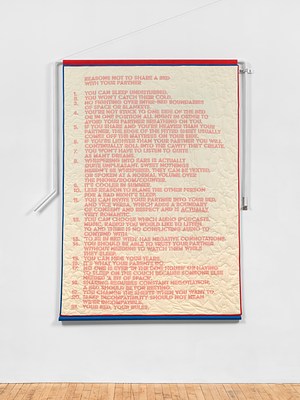 REASONS NOT TO SHARE A BED
WITH YOUR PARTNER
1. YOU CAN SLEEP UNDISTURBED.
2. YOU WON'T CATCH THEIR COLD.
3. NO FIGHTING OVER INVISIBLE BOUNDARIES
OF SPACE OR BLANKETS.
4. YOU'RE NOT STUCK TO ONE SIDE OF THE BED
OR IN ONE POSITION ALL NIGHT IN ORDER TO
AVOID YOUR PARTNER BREATHING ON YOU.
5. IF YOU SHARE AND YOU'RE HEAVIER THAN YOUR
PARTNER, THE EDGE OF THE FITTED SHEET USUALLY
COMES OFF THE MATTRESS ON YOUR SIDE.
6. IF YOU'RE LIGHTER THAN YOUR PARTNER YOU WILL
CONTINUALLY ROLL INTO THE CAVITY THEY CREATE.
7. YOU WON'T HAVE TO LISTEN TO QUITE
AS MANY DREAMS.
8. WHISPERING INTO EARS IS ACTUALLY
QUITE UNPLEASANT. SWEET NOTHINGS
NEEDN'T BE WHISPERED, THEY CAN BE TEXTED
OR SPOKEN AT A NORMAL VOLUME OVER
THE PHONE/ROOM/COUNTER.
9. IT'S COOLER IN SUMMER.
10. LESS REASON TO BLAME THE OTHER PERSON
FOR A BAD NIGHT'S SLEEP.
11. YOU CAN INVITE YOUR PARTNER INTO YOUR BED
AND VICE VERSA, WHICH ADDS A BOUNDARY
OF CONSENT AND DESIRE AND IS ACTUALLY
VERY ROMANTIC.
12. YOU CAN CHOOSE WHICH AUDIO (PODCASTS,
MUSIC, RADIO) YOU WOULD LIKE TO LISTEN
TO AND THERE IS NO CONFLICTING AUDIO TO
CONTEND WITH.
13. TO LIE IN BED WITH HAS NEGATIVE CONNOTATIONS.
14. YOU SHOULD BE ABLE TO TRUST YOUR PARTNER
WITHOUT NEEDING TO WATCH THEM WHILE
THEY SLEEP.
15. YOU CAN HIDE YOUR TEARS.
16. IT'S WHAT YOUR PARENTS DID.
17. NO ONE IS EVER IN THE
TO SLEEP ON THE COUCH BECAUSE SOMEONE
NEEDED A BIT OF SPACE.
18. SHARING REQUIRES CONSTANT NEGOTIATION,
A BED SHOULD BE FOR RESTING.
19. YOU CHANGE THE SHEETS WHEN YOU WANT TO.
20. SLEEP INCOMPATIBILITY SHOULD NOT MEAN
WE'RE INCOMPATIBLE.
21. YOUR BED, YOUR RULES.